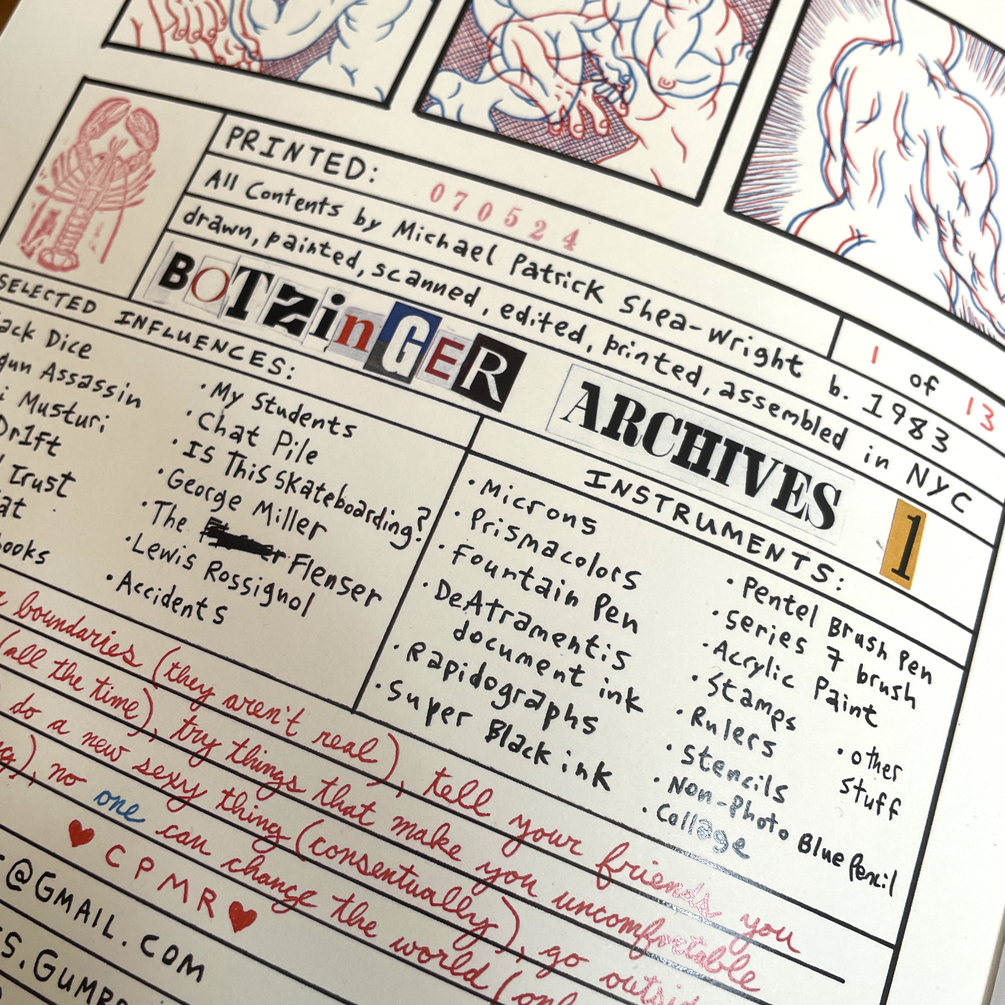 PRINTED: 070524
All Contents by Michael Patrick Shea-Wright b. 1983
1 of 13
drawn, painted, scanned, edited, printed, assembled in NYC
BOTZinGER ARCHIVES 1
SELECTED INFLUENCES:
Dice
Assassin
Musturi
Dr1ft
Trust
· My Students
· Chat Pile
· Is This Skateboarding?
· George Miller
· The Flenser
· Lewis Rossignol
· Accidents
INSTRUMENTS:
· Microns
· Prismacolors
· Fountain Pen
· DeAtramentis
document ink
· Rapidographs
· Super Black ink
· Pentel Brush Pen
· Series 7 brush
· Acrylic Paint
· Stamps
· Rulers
· Stencils
· Non-Photo Blue Pencil
· Collage
· other
stuff
boundaries (they aren't real), tell your friends you
(all the time), try things that make you uncomfortable
do a new sexy thing (consentually), go outside
no one can change the world
♥ CPMR ♥
@GMAIL.COM